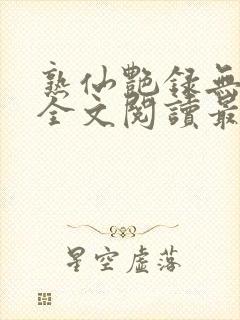 熟仙艷録無
全文閱讀最
星空虛落